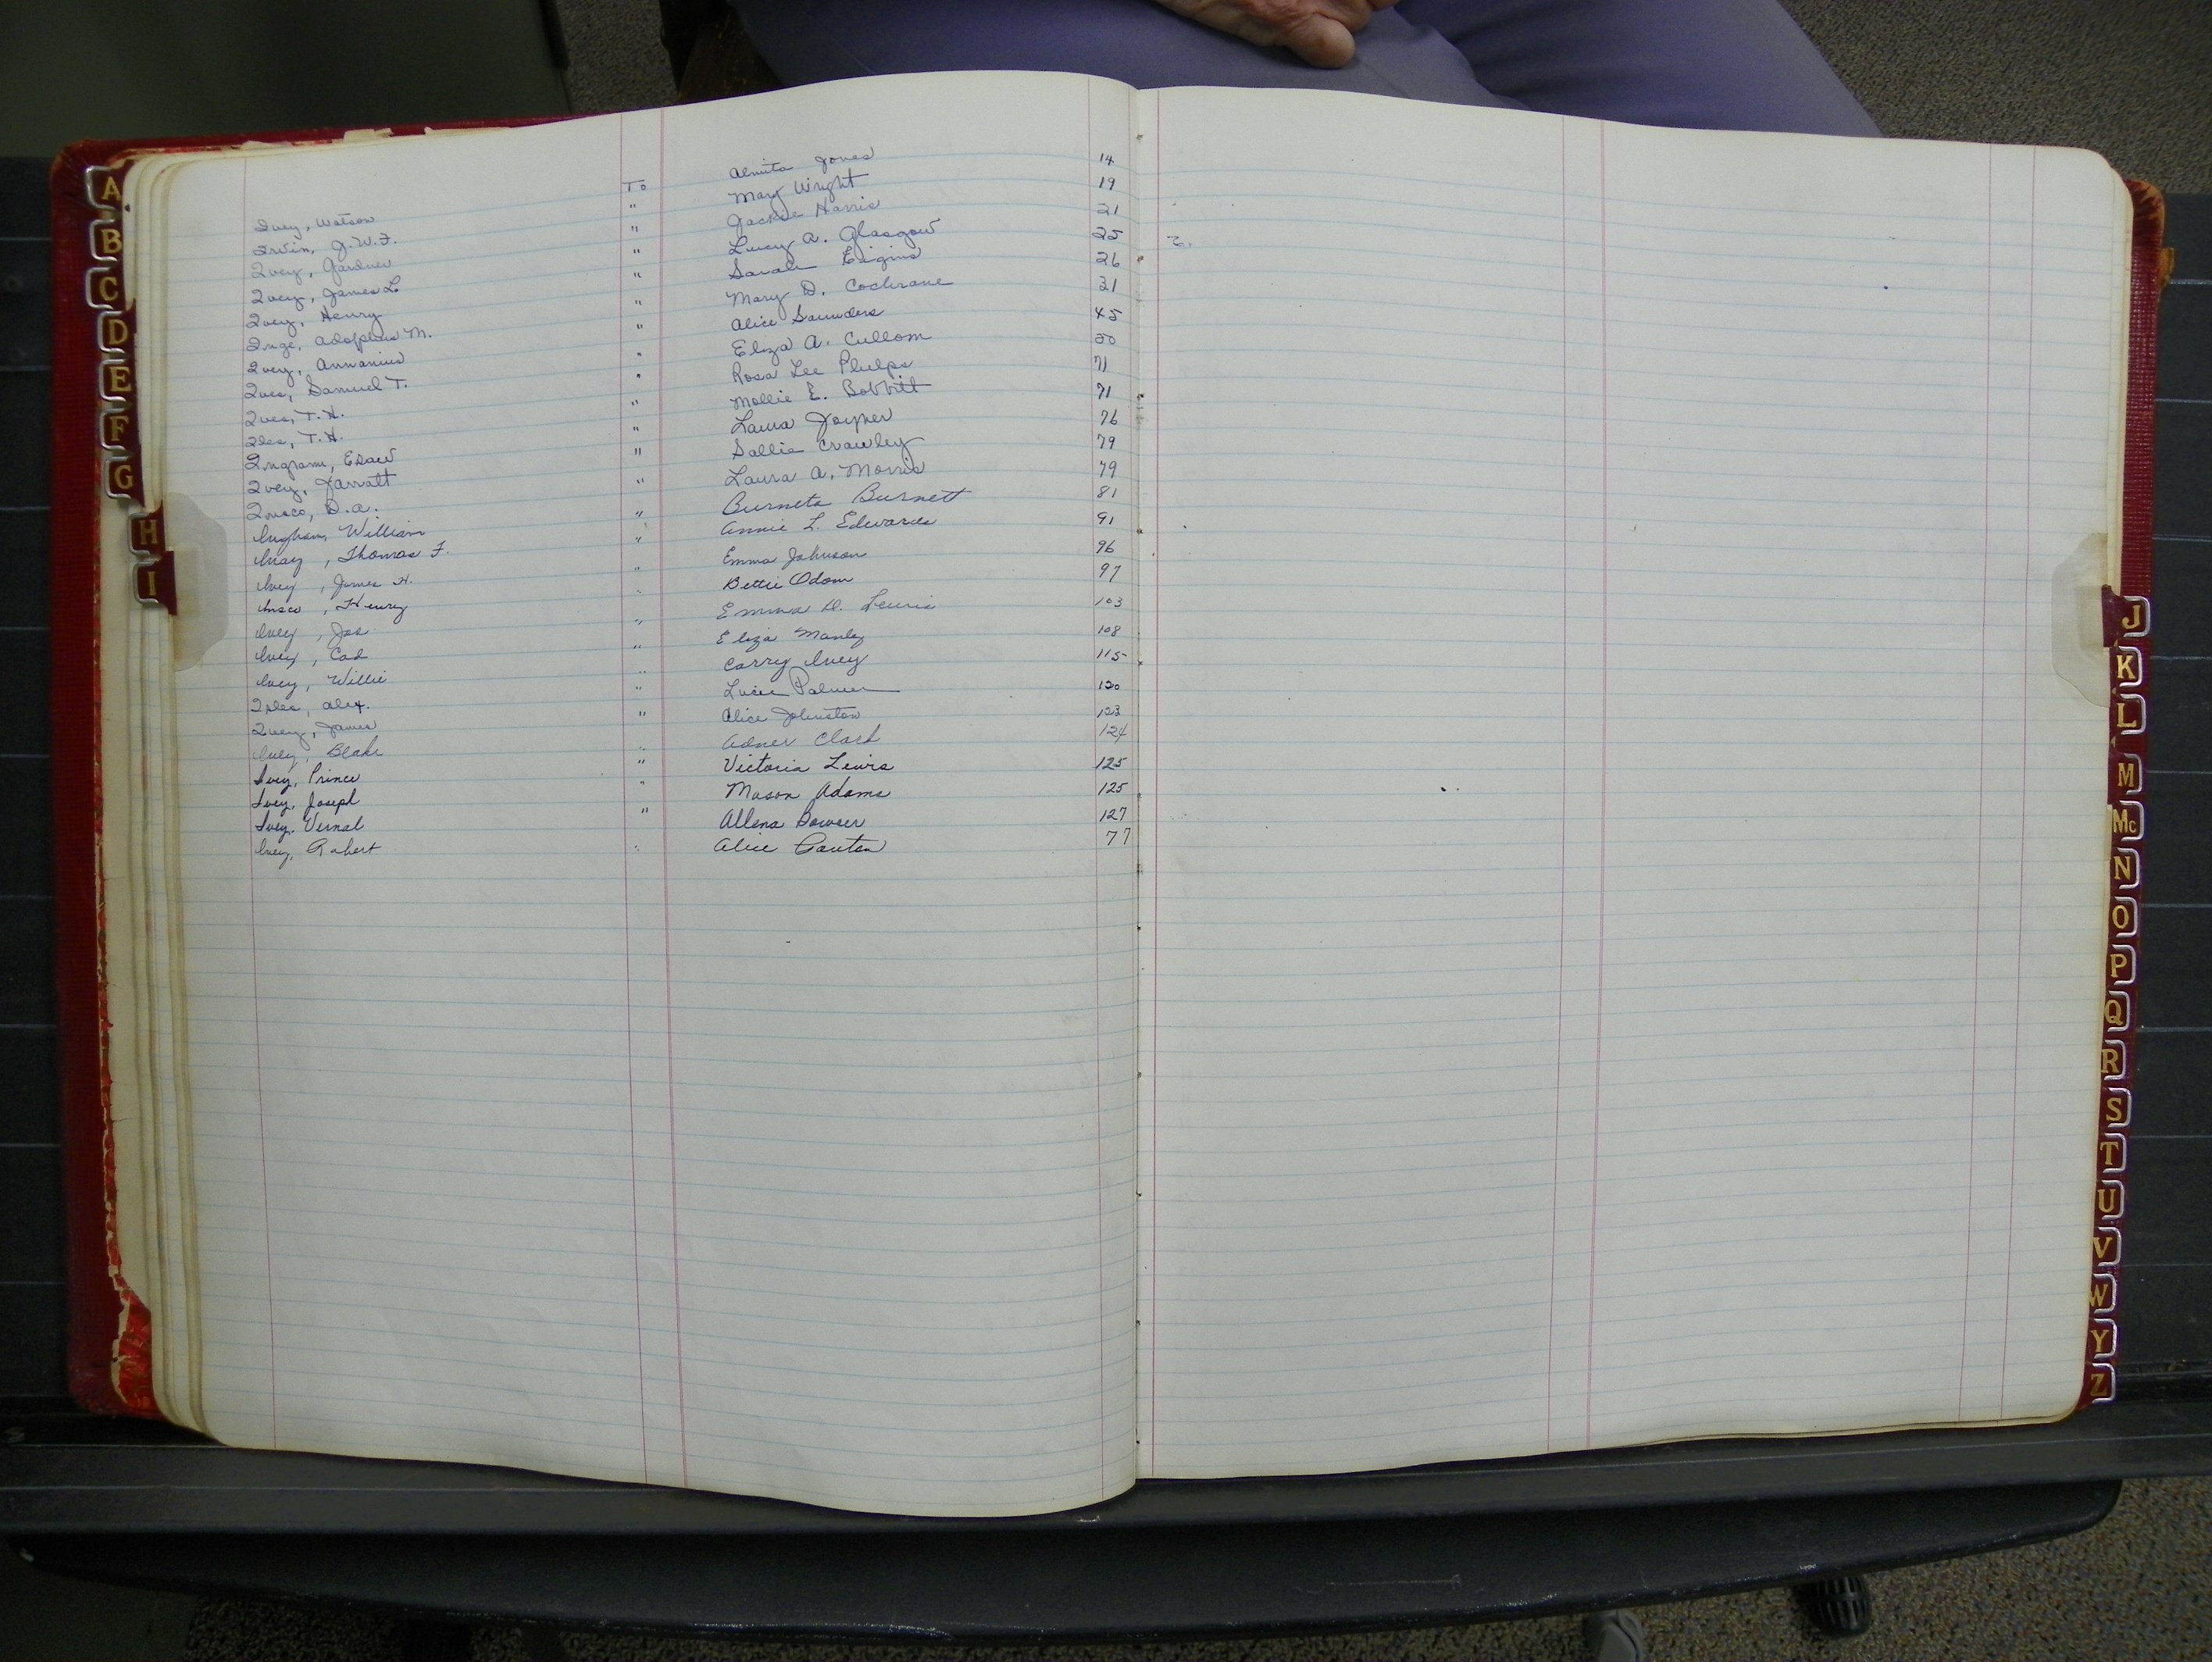 Ivey, Watson To Almita Jones 14
Irvin, J.W.F. " Mary Wright 19
Ivey, Gardner " Jackie Harris 21
Ivey, James L " Lucy A. Glasgow 25
Ivey, Henry " Sarah 26
Inge, Adolphus M. " Mary D. Cochrane 31
Ivey, Annanius " Alice Saunders 45
Ives, Samuel T. " Eliza A. Cullom 50
Ives, T.H. " Rosa Lee Phelps 71
Iles, T.H. " Mollie E. Bobbitt 71
Ingram, Esaw " Laura Joyner 76
Ivey, Jarratt " Sallie Crawley 79
Insco, D.A. " Laura A. Morris 79
William " Burneta Burnett 81
Ivay, Thomas F. " Annie L. Edwards 91
Ivey, James H. " Emma Johnson 96
Insco, Henry " Bettie Odom 97
Ivey, Jos " Emma D. Lewis 103
Ivey, Cad " Eliza Manley 108
Ivey, Willie " Carry Ivey 115
Iles, Alex. " Lucie Palmer 120
Ivey, James " Alice Johnston 123
Ivey, Blake " Adner Clark 124
Ivey, Prince " Victoria Lewis 125
Ivey, Joseph " Mason Adams 125
Ivey, Vernal " Allena Bowser 127
Ivey, Robert " Alice 77
A
B
C
D
E
F
G
H
I
J
K
L
M
Mc
N
O
P
Q
R
S
T
U
V
W
Y
Z